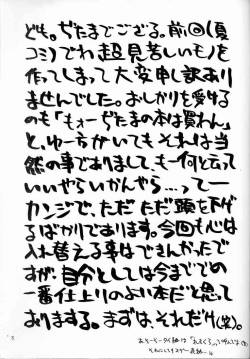 ども。ぢたまでござる。前回(夏
コミ)でわ超見苦しいモノを
作ってしまって大変申し訳あり
ませんでした。おしかりを受ける
のも「もォーぢたまの本は買わん」
と、ゆー方がいてもそれは当
然の事でありまして、も一何と云って
いいやらいかんやら…って一
カンジで、ただただ頭を下げ
るばかりであります。今回も心は
入れ替える事はできんかったで
すが、自分としては今までの
一番仕上りのよい本だと思って
おりまする。まずは、それだけ(笑)。